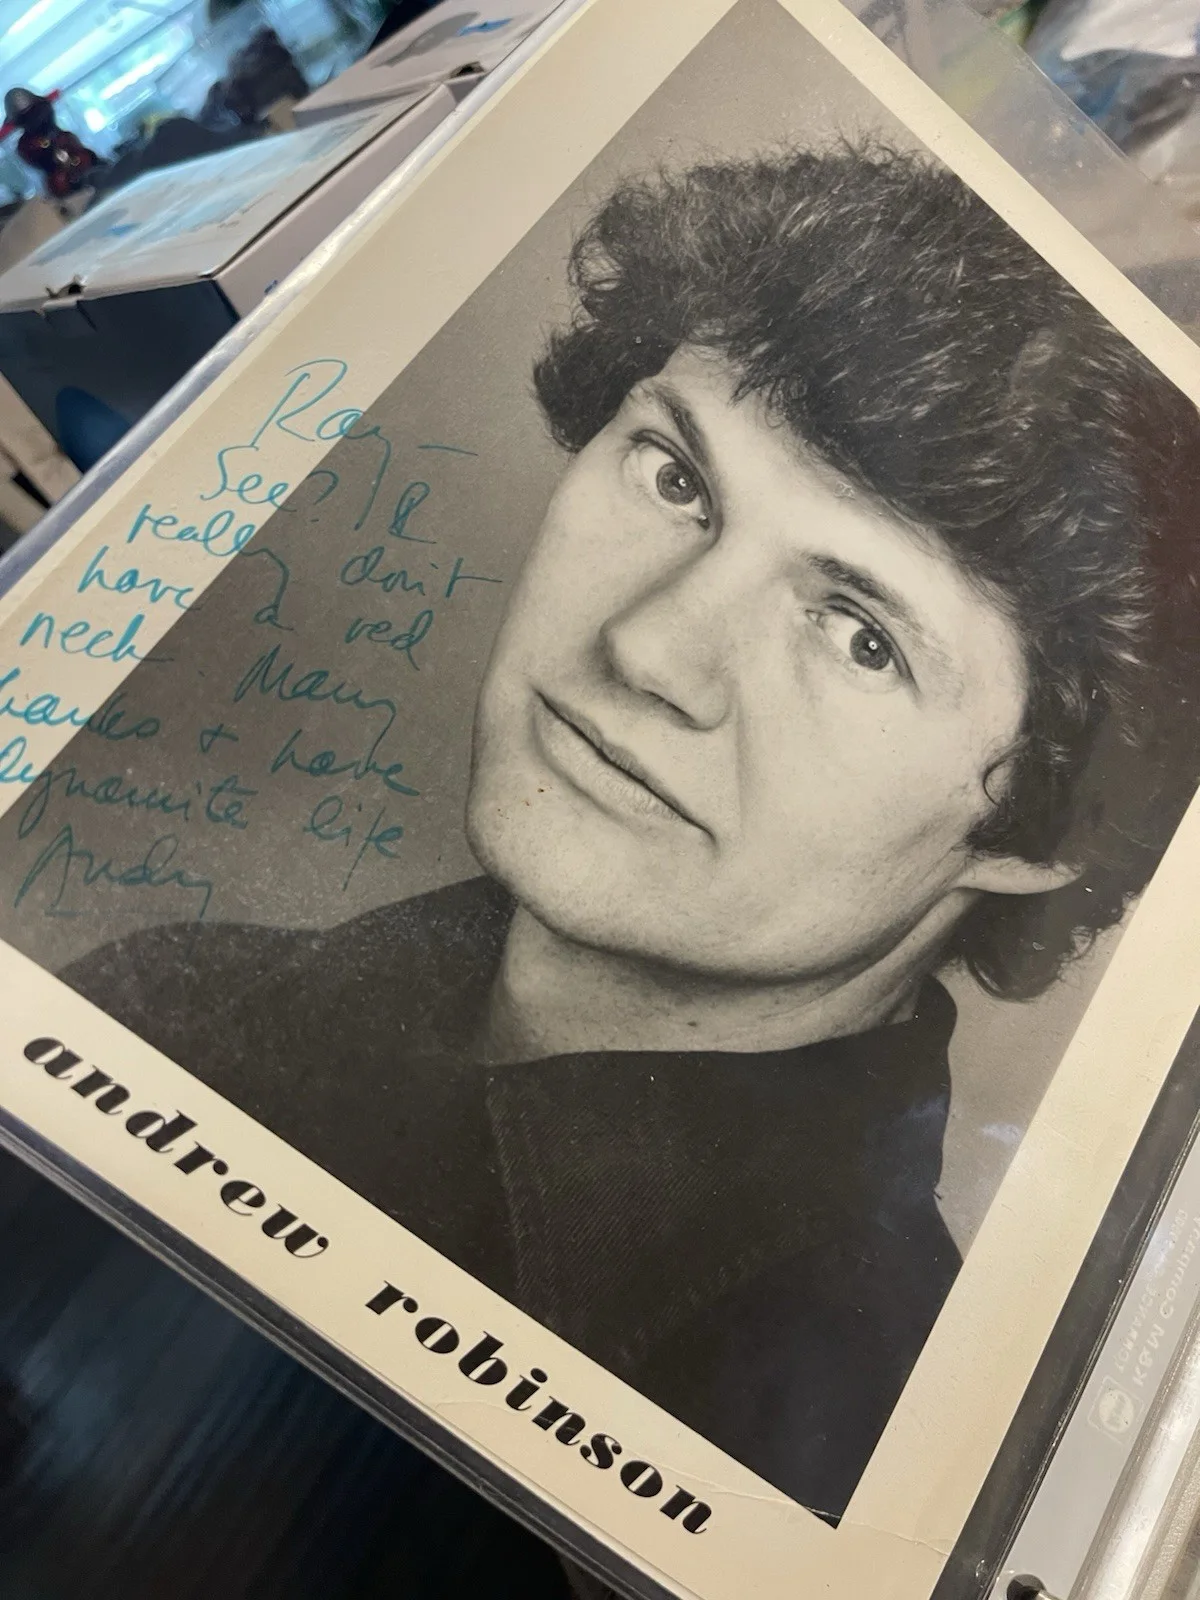 Ray -
See? I
really don't
have a red
neck. Many
thanks + have
dynamite life
Andy
andrew robinson
K&M Com